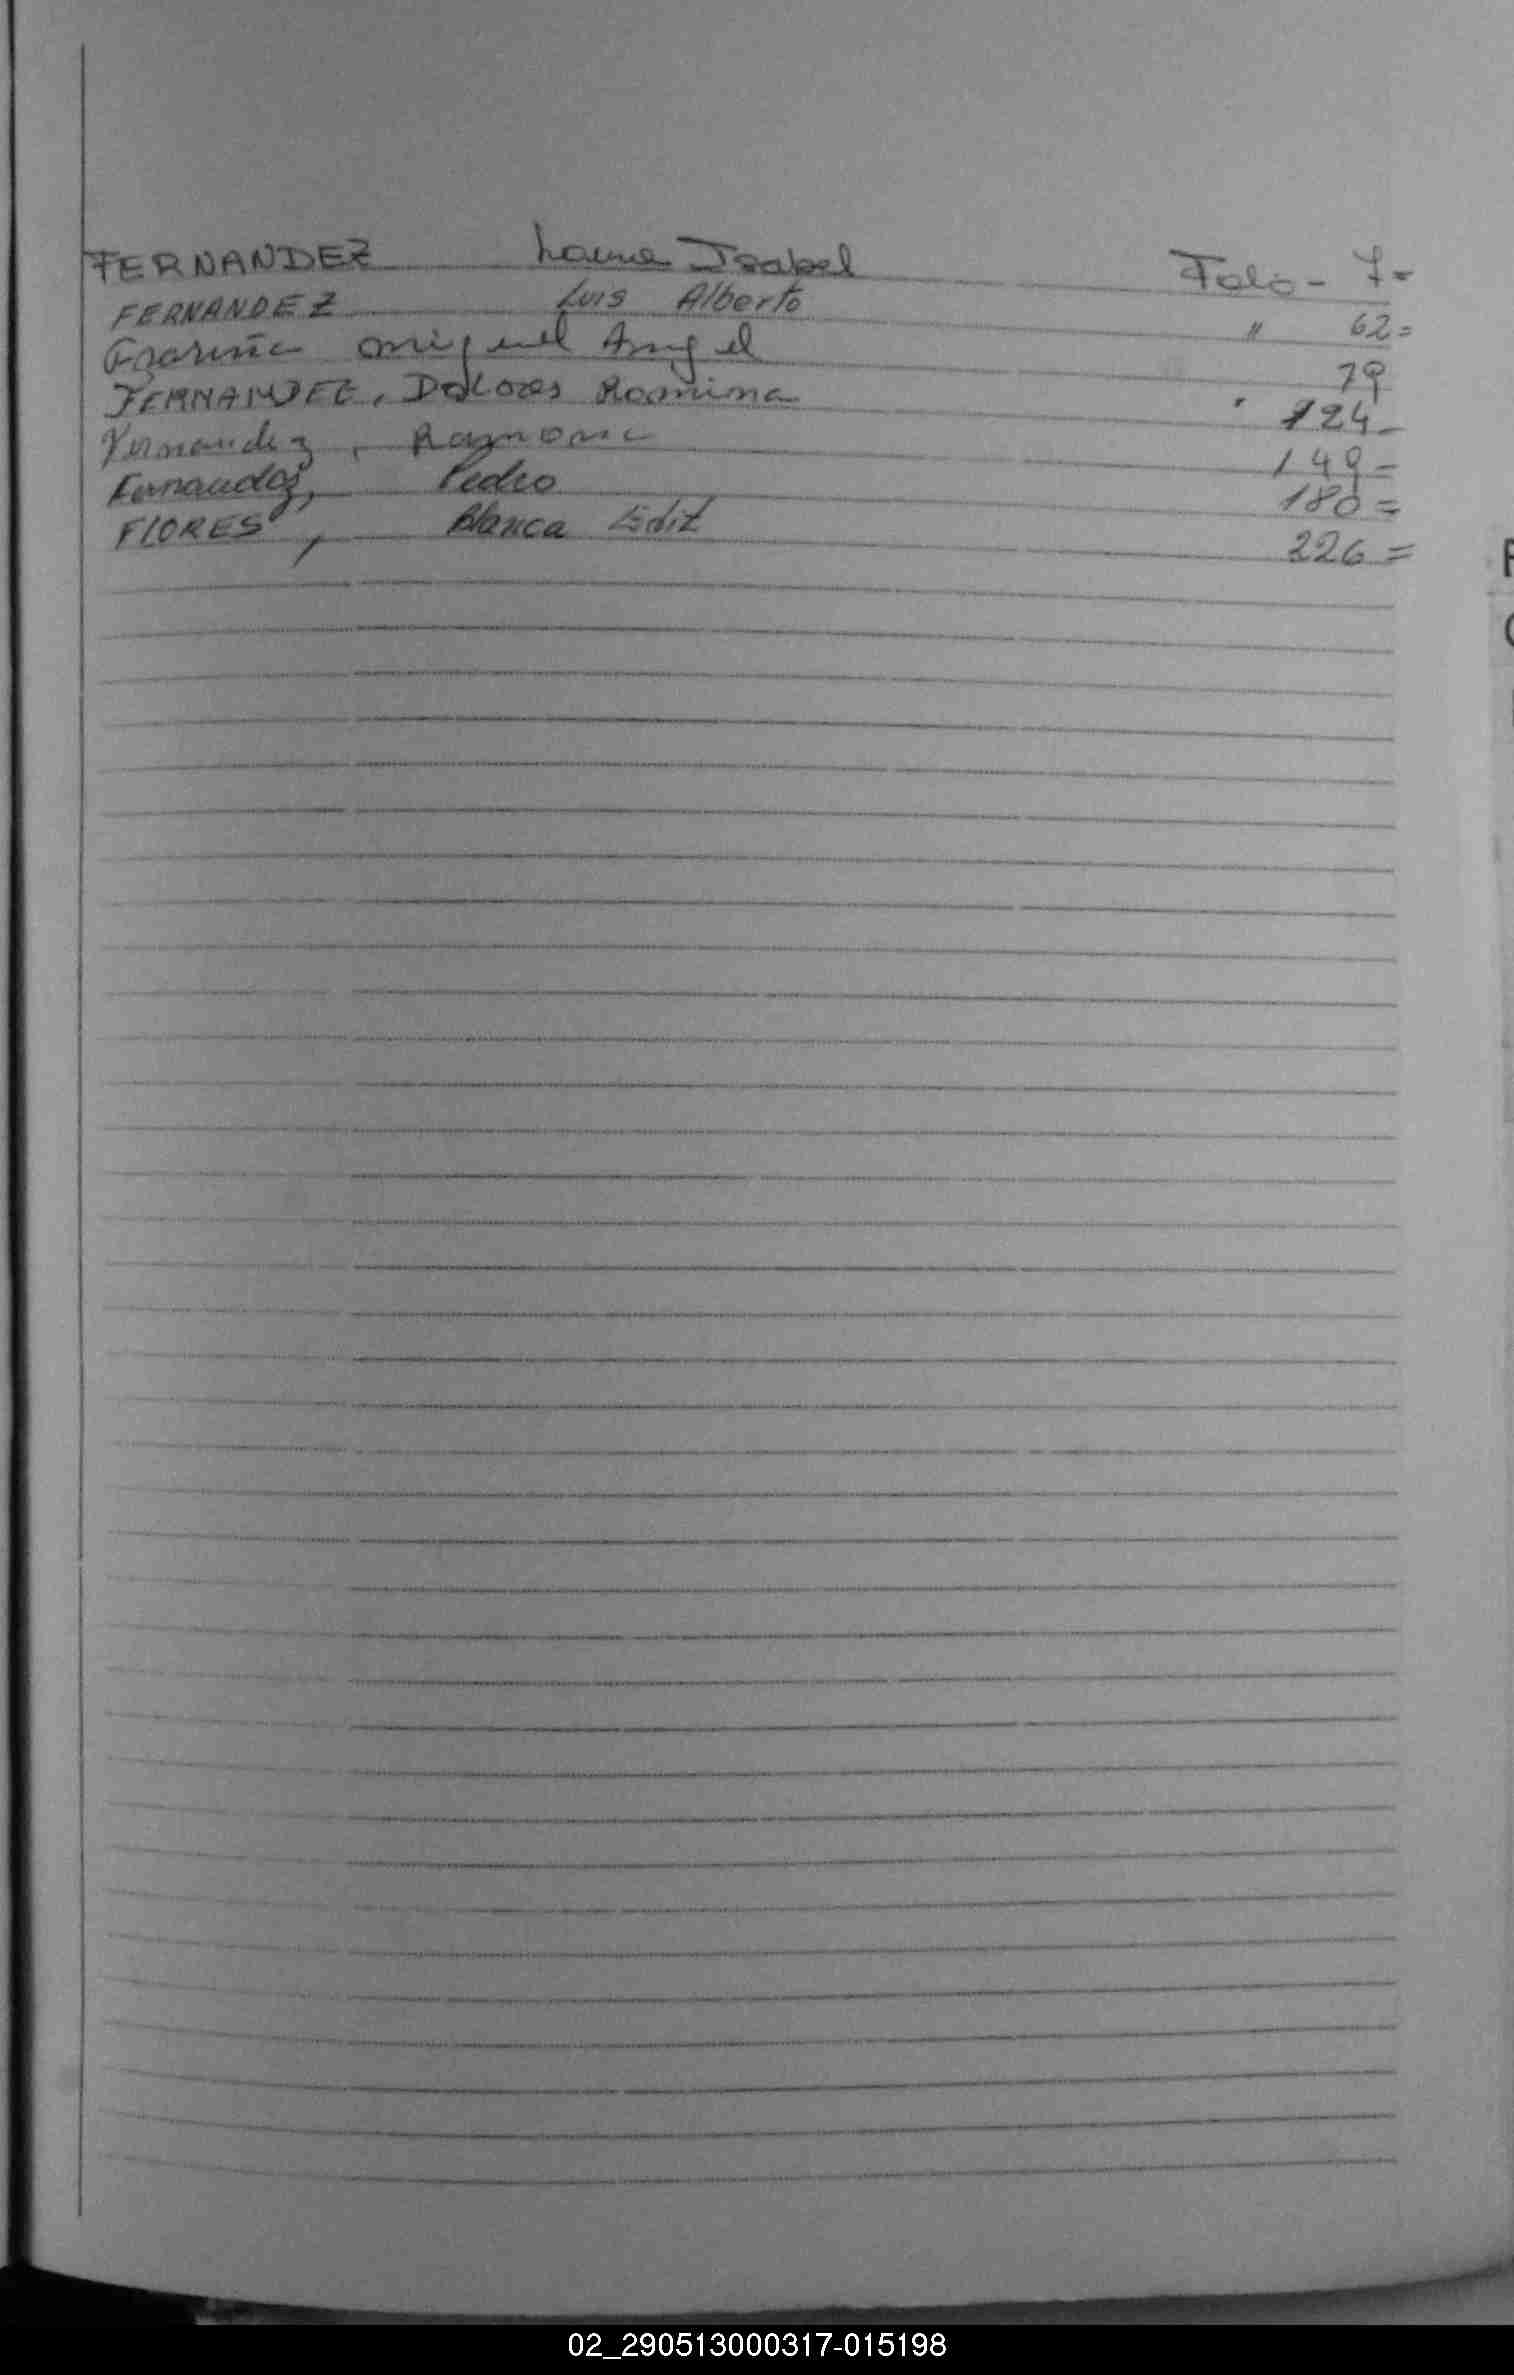 FERNANDEZ Laura Isabel Folio - 7=
FERNANDEZ Luis Alberto " 62=
Miguel Angel 79
FERNANDEZ, Dolores Romina " 124-
Fernandez, Ramona 149=
Fernandez, Pedro 180=
FLORES, Blanca Edit 226=
02_290513000317-015198